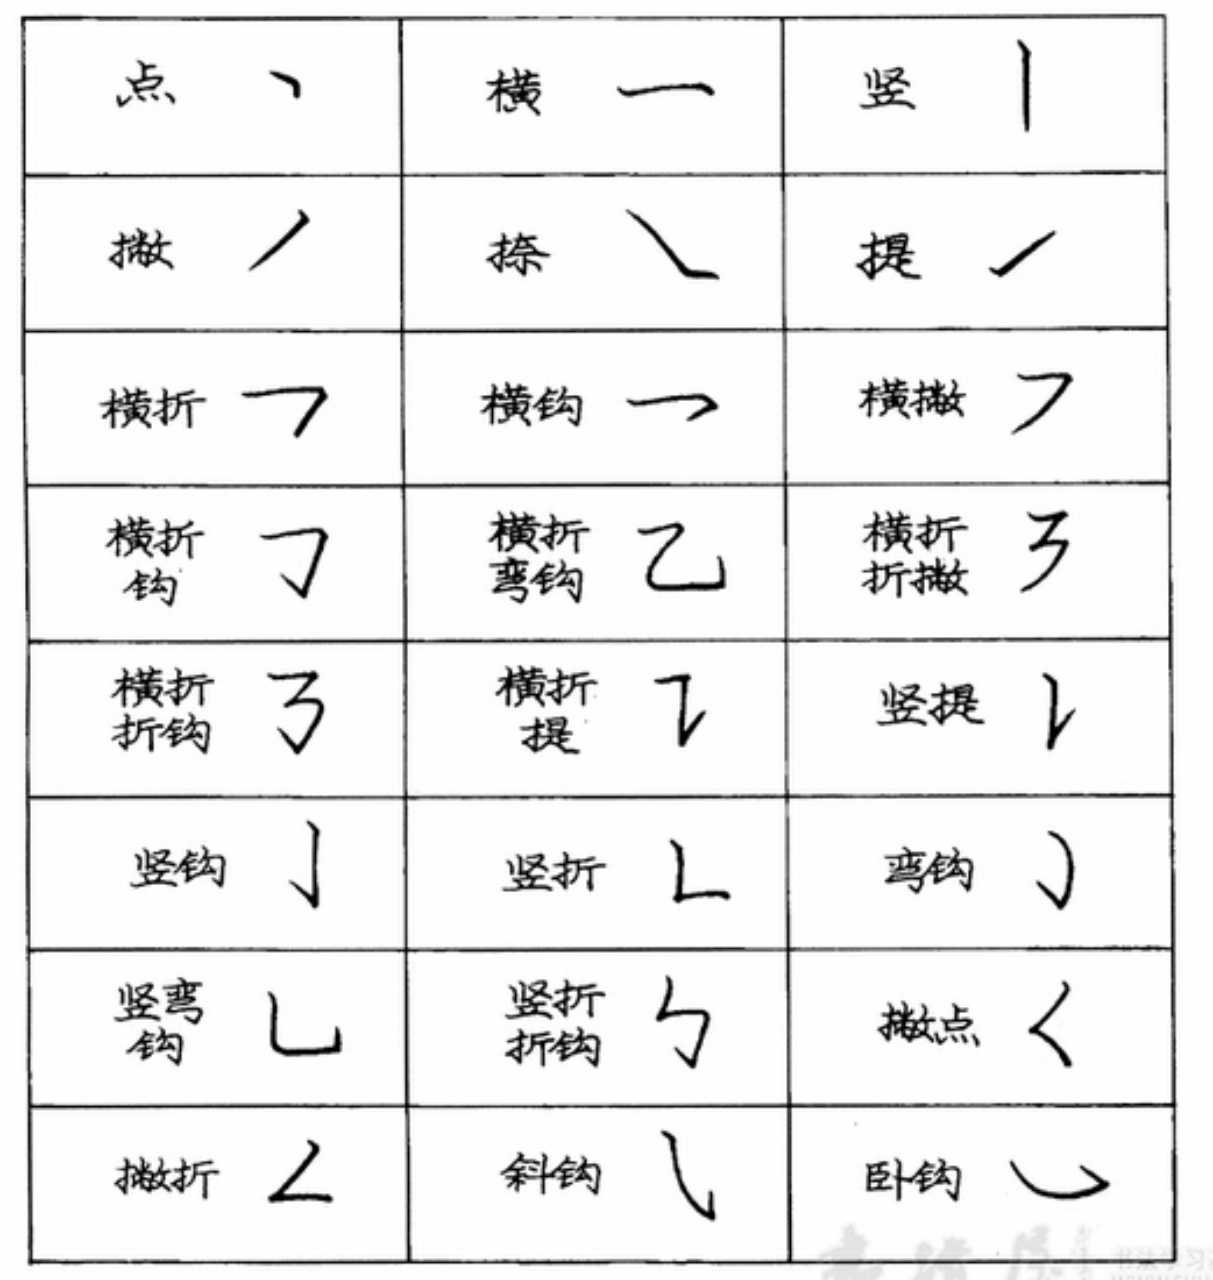 点 丶
横 一
竖 丨
撇 丿
捺 ㇏
提 ㇀
横折 ㇕
横钩 ㇖
横撇 ㇇
横折
钩 ㇆
横折
弯钩 ㇈
横折
折撇 ㇋
横折
折钩 ㇌
横折
提 ㇊
竖提 ㇙
竖钩 亅
竖折 ㇗
弯钩 ㇁
竖弯
钩 ㇟
竖折
折钩 ㇉
撇点 ㇛
撇折 ㇜
斜钩 ㇂
卧钩 ㇃